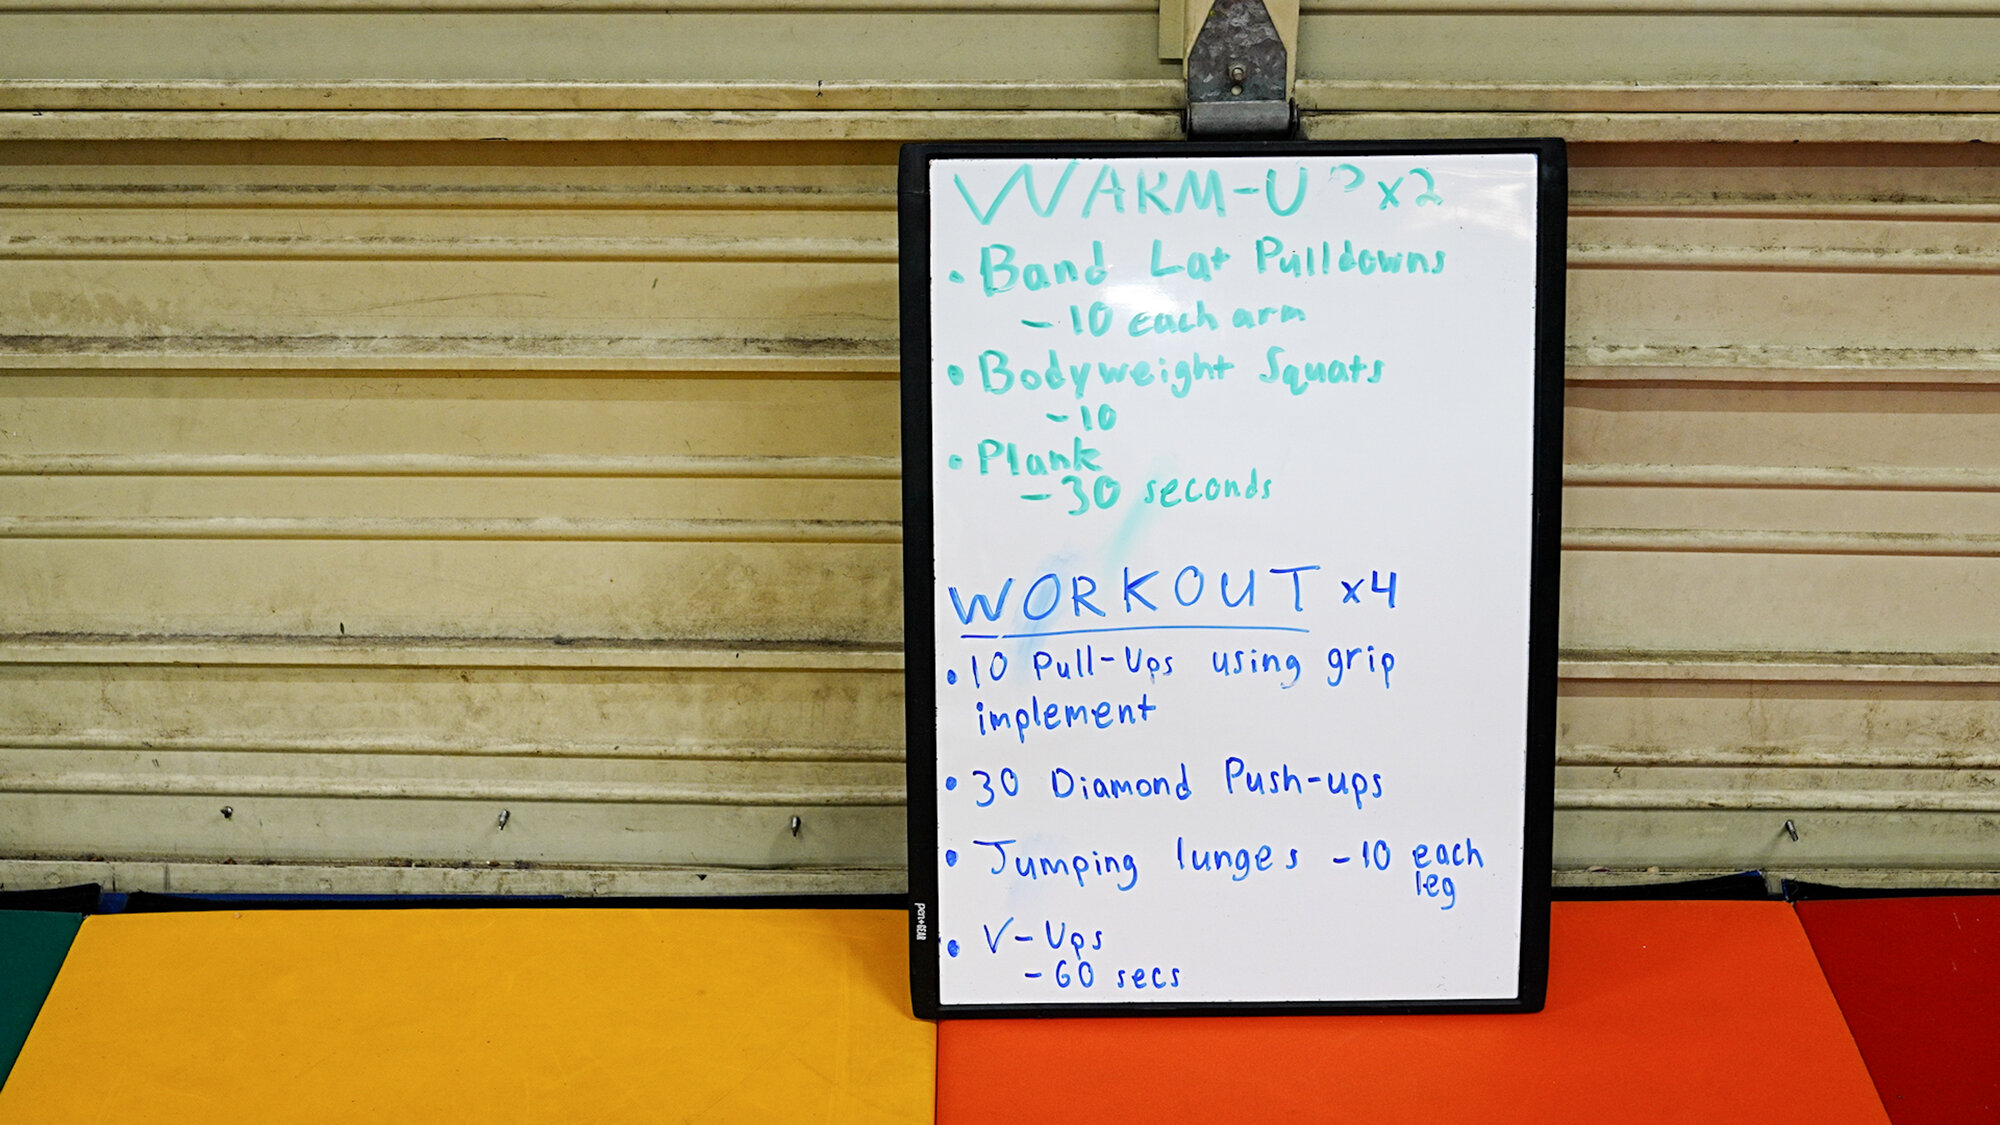 WARM-UP x2
• Band Lat Pulldowns
- 10 each arm
• Bodyweight Squats
- 10
• Plank
- 30 seconds
WORKOUT x4
• 10 Pull-Ups using grip
implement
• 30 Diamond Push-ups
• Jumping lunges - 10 each
leg
• V-Ups
- 60 secs
pen+GEAR